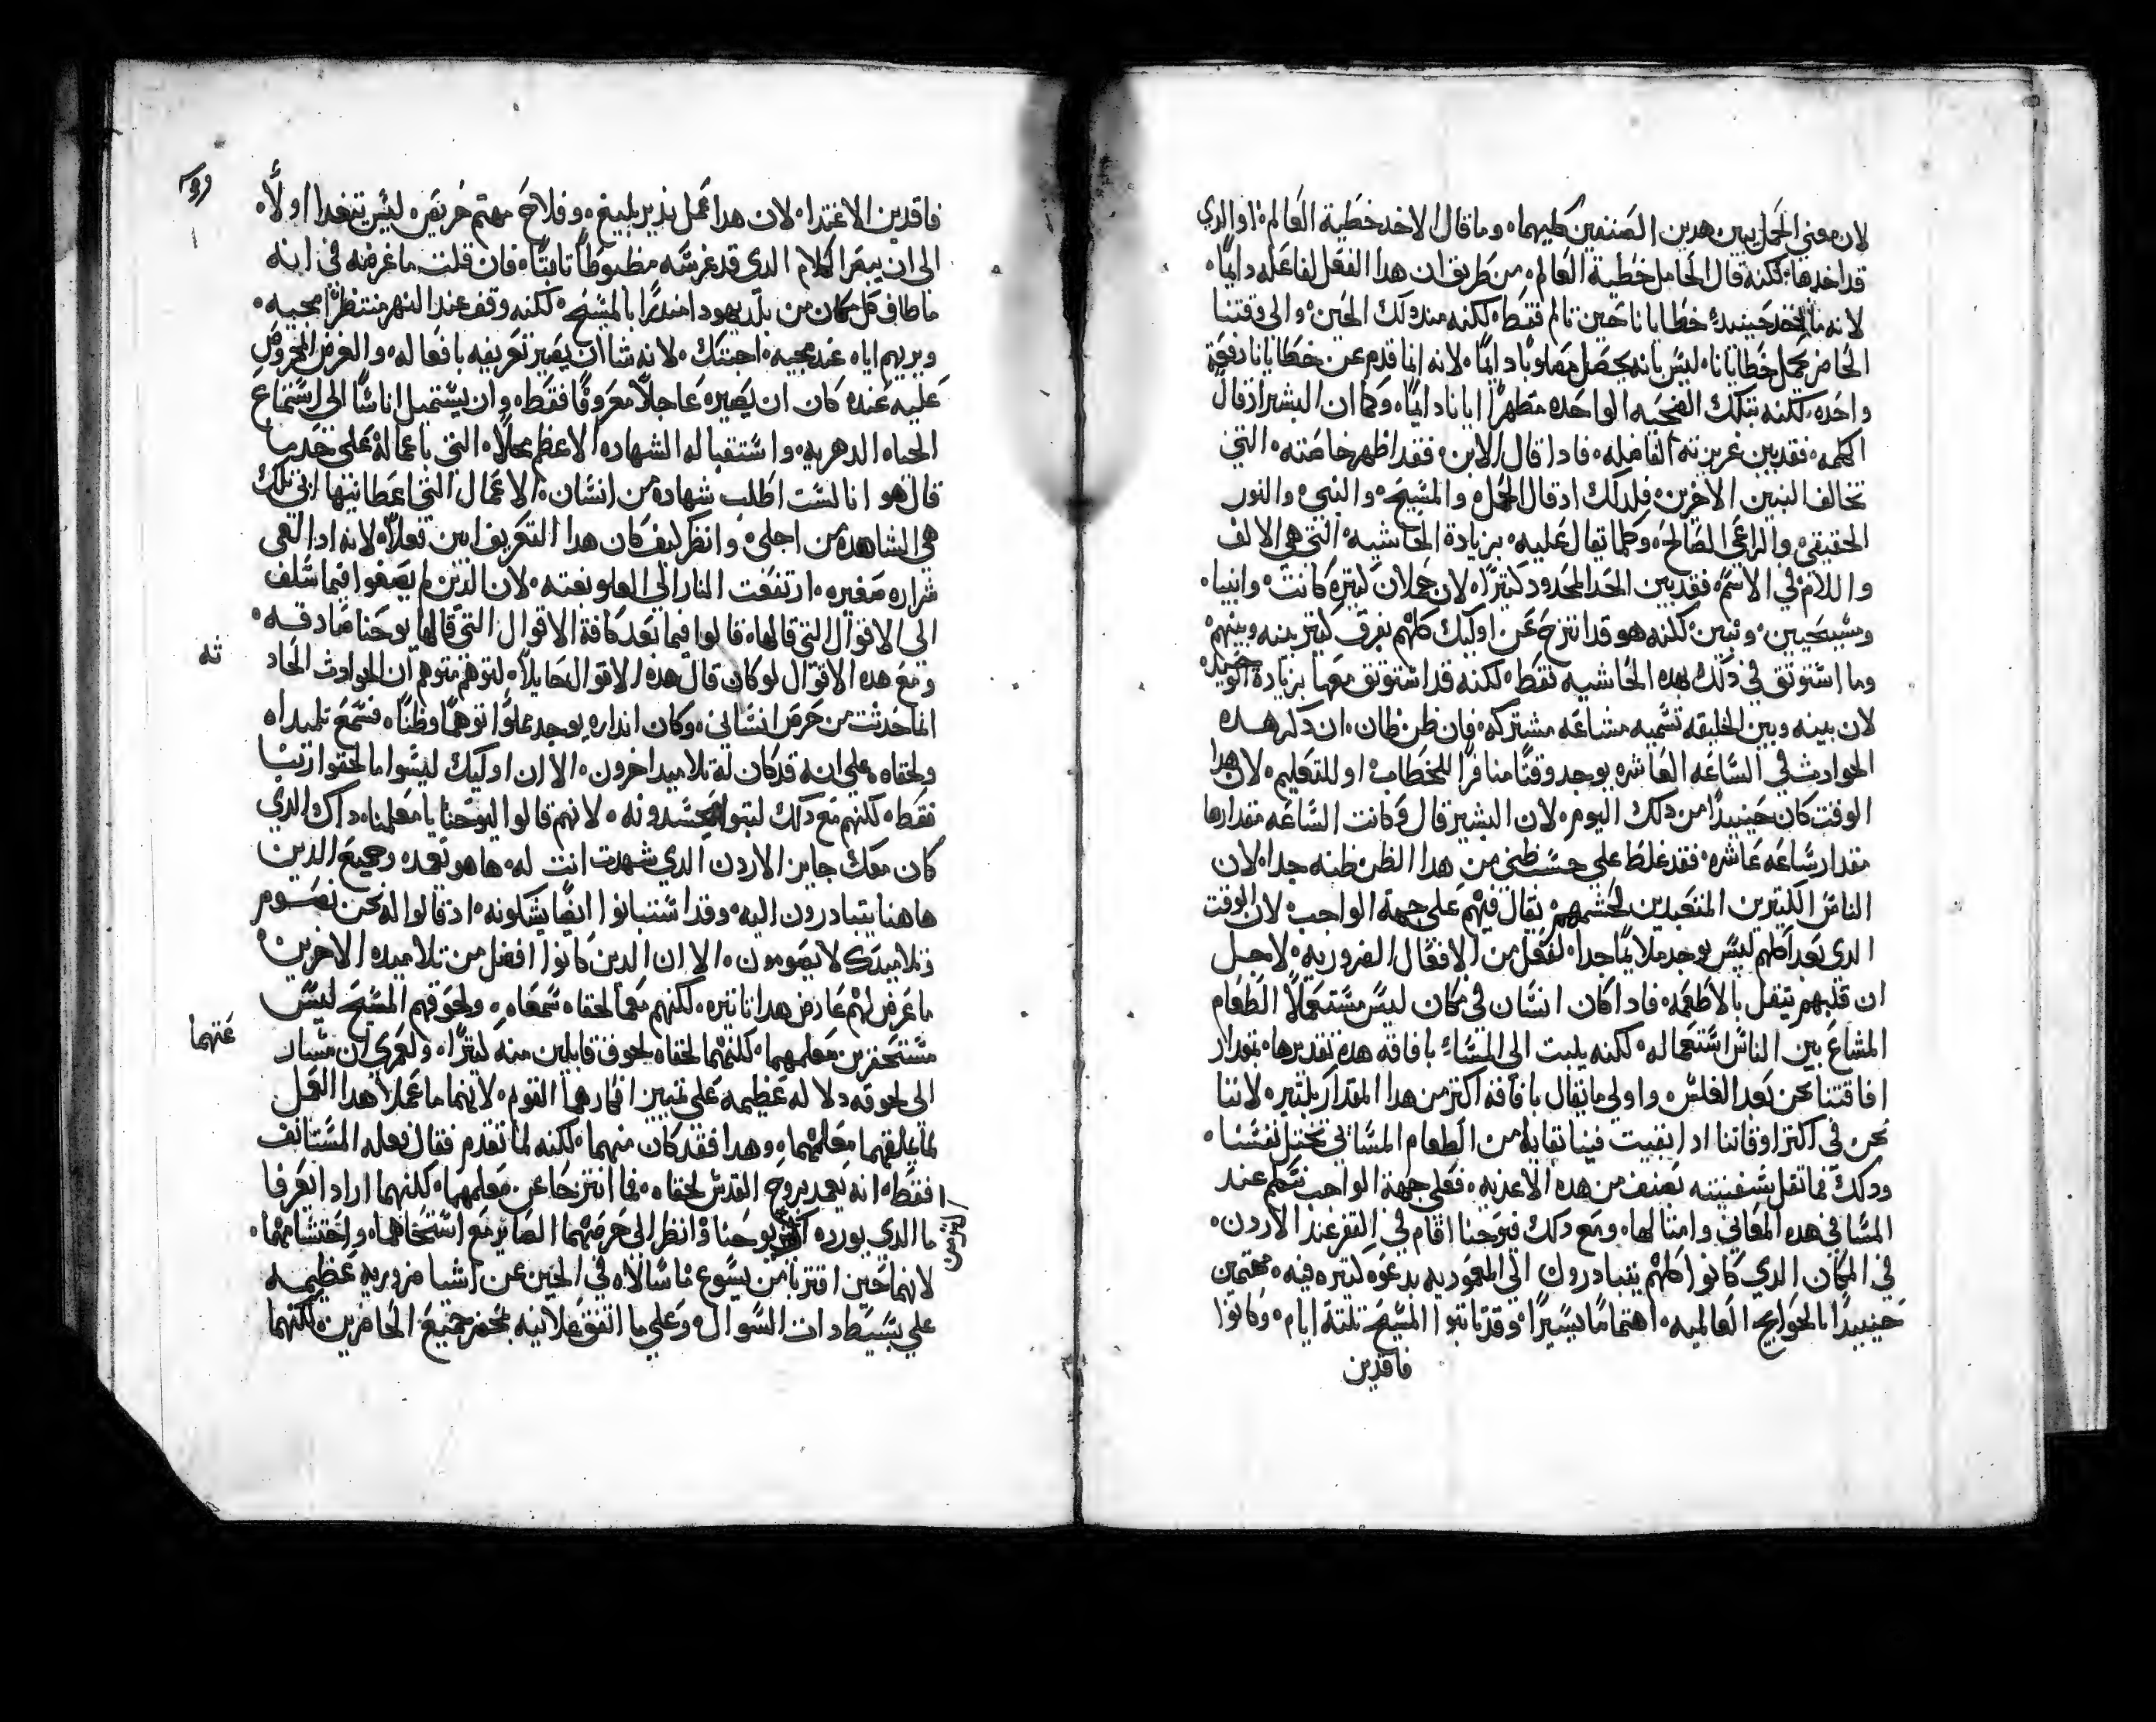 لان معني الحمل يبين هدين الصنفين كليهما ٠ وما قال الاخد خطية العالم ٠ او الدي
قد اخدها ٠ لكنه قال الحامل خطية العالم ٠ من طريق ان هدا الفعل لفاعله دايمًا ٠
لانه ما اخد حينيد خطايانا حين تالم فقط ٠ لكنه مند دلك الحين ٠ والي وقتنا
الحاضر يحمل خطايانا ٠ ليس بانه يحصل مصلوبًا دايمًا ٠ لانه انما قدم عن خطايانا دفعة
واحده ٠ لكنه بتلك الضحيه الواحده مطهرًا ايانا دايمًا ٠ وكما ان البشير اد قال
الكلمه ٠ فقد بين غريزته الفاضله ٠ فادا قال الابن ٠ فقد اظهر خاصته ٠ التي
تخالف البنين الاخرين ٠ فلدلك اد قال الحمل ٠ والمسيح ٠ والنبي ٠ والنور
الحقيقي ٠ والراعي الصالح ٠ وكلما تقال عليه ٠ بزيادة الحاشيه ٠ التي هي الالف
واللام في الاسم ٠ فقد بين الحد المحدود كتيرًا ٠ لان حملان كتيره كانت ٠ وانبيا ٠
ومسيحيين ٠ وبنين ٠ لكنه هو قد انتزح عن اوليك كلهم بفرق كتير بينه وبينهم ٠
وما استوتق في دلك بهده الحاشيه فقط ٠ لكنه قد استوتق معها بزيادة الوحيد ٠
لان بينه وبين الخليقه تسميه مشاعه مشتركه ٠ فان ظن ظان ٠ ان دكر هده
الحوادت في الساعه العاشره يوجد وقتًا منافرًا للخطاب ٠ او للتعليم ٠ لان هدا
الوقت كان حينيدًا من دلك اليوم ٠ لان البشير قال وكانت الساعه مقدارها
مقدار ساعه عاشره ٠ فقد غلط علي حسب ظني من هدا الظن ظنه جدا ٠ لان
الناس الكتيرين المتعبدين لجسمهم يقال فيهم علي جهة الواجب ٠ لان الوقت
الدي بعد اكلهم ليس يوجد ملايمًا جدا ٠ لفعل من الافعال الضروريه ٠ لاجل
ان قلبهم يتقل بالاطعمه ٠ فادا كان انسان في مكان ليس مستعملًا الطعام
المشاع بين الناس استعماله ٠ لكنه يلبت الي المساء بافاقه هده تقديرها ٠ بمقدار
افاقتنا نحن بعد الغلس ٠ واولي ما يقال بافاقه اكتر من هدا المقدار بكتير ٠ لاننا
نحن في اكتر اوقاتنا ادا بقيت فينا بقايا من الطعام المسائي تختل نفسنا ٠
ودلك فما تقل سفينته بصنف من هده الاغديه ٠ فعلي جهة الواجب تكلم عند
المسا في هده المعاني وامتالها ٠ ومع دلك فيوحنا اقام في القفر عند الاردن ٠
في المكان الدي كانوا كلهم يتبادرون الي المعموديه بدعوه كتيره فيه ٠ مهتمين
حينيدًا بالحوايج العالميه ٠ اهتمامًا يسيرًا ٠ وقد باتوا المسيح تلتة ايام ٠ وكانوا
فاقدين
فاقدين الاغتدا ٠ لان هدا عمل ندير بليغ ٠ وفلاح مهتم حريص ٠ ليس يتغدا اولًا ٠
الي ان يبصر الكلام الدي قد غرسه مظبوطًا تابتًا ٠ فان قلت ما غرضه في انه
ما طاف كل مكان من بلد يهودا مندرًا بالمسيح ٠ لكنه وقف عند النهر منتظرًا مجيه ٠
ويريهم اياه عند مجيه ٠ اجبتك ٠ لانه شا ان يصير تعريفه بافعاله ٠ والغرض المحروص
عليه عنده كان ان يصيره عاجلًا معروفًا فقط ٠ وان يستميل اناسًا الي استماع
الحياه الدهريه ٠ واستقبا له الشهاده الاعظم محلًا ٠ التي باعماله علي حد ما
قال هو انا لست اطلب شهادة من انسان ٠ الاعمال التي اعطانيها ابي تلك
هي الشاهدة من اجلي ٠ وانظر كيف كان هدا التعريف ابين فعلًا ٠ لانه اد القي
شراره صغيره ٠ ارتفعت النار الي العلو بغته ٠ لان الدين لم يصغوا فيما سلف
الي الاقوال التي قالها ٠ قالوا فيما بعد كافة الاقوال التي قالها يوحنا صادقه ٠
ومع هده الاقوال لو كان قال هده الاقوال جايلًا ٠ لتوهم متوهم ان الحوادت الحاد
ته
انما حدتت من حرص انساني ٠ وكان انداره يوجد مملوًا توهمًا وظنًا ٠ فسمع تلميداه
ولحقاه ٠ علي انه قد كان له تلاميد اخرون ٠ الا ان اوليك ليسوا ما لحقوا ربنا
فقط ٠ لكنهم مع دلك لبتوا يحسدونه ٠ لانهم قالوا ليوحنا يا معلمنا ٠ داك الدي
كان معك جايز الاردن الدي شهدت انت له ٠ ها هو تعمد وجميع الدين
هاهنا يتبادرون اليه ٠ وقد استبانوا ايضًا يشكونه ٠ اد قالوا له نحن نصوم
وتلاميدك لا يصومون ٠ الا ان الدين كانوا افضل من تلاميده الاخرين ٠
ما عرض لهم عارض هدا تاتيره ٠ لكنهم معًا لحقاه سمعاه ٠ ولحوقهم المسيح ليس
مستحقرين معلمهما ٠ لكنهما لحقاه بلحوف قابلين منه كتيرًا ٠ ولعمري ان مسار
عتهما
الي لحوقه دلاله عظيمه علي تمييز افكارهما القوم ٠ لانهما ما عملا هدا العمل
لما يملقهما معلمهما ٠ وهدا فقد كان منهما ٠ لكنه لما تقدم فقال فعله المستانف
فقط ٠ انه يعمد بروح القدس لحقاه ٠ فما انتزحا عن معلمهما ٠ لكنهما ارادا يعرفا
ما الدي يورده اكتر من يوحنا ٠ وانظر الي حرصهما الصاير مع استحياهما ٠ واحتشامهما ٠
لانهما حين اقتربا من يسوع ما سالاه في الحين عن اشيا ضروريه عظيمه
علي بسيط دات السوال ٠ وعلي ما اتفق علانيه بمحضر جميع الحاضرين ٠ لكنهما